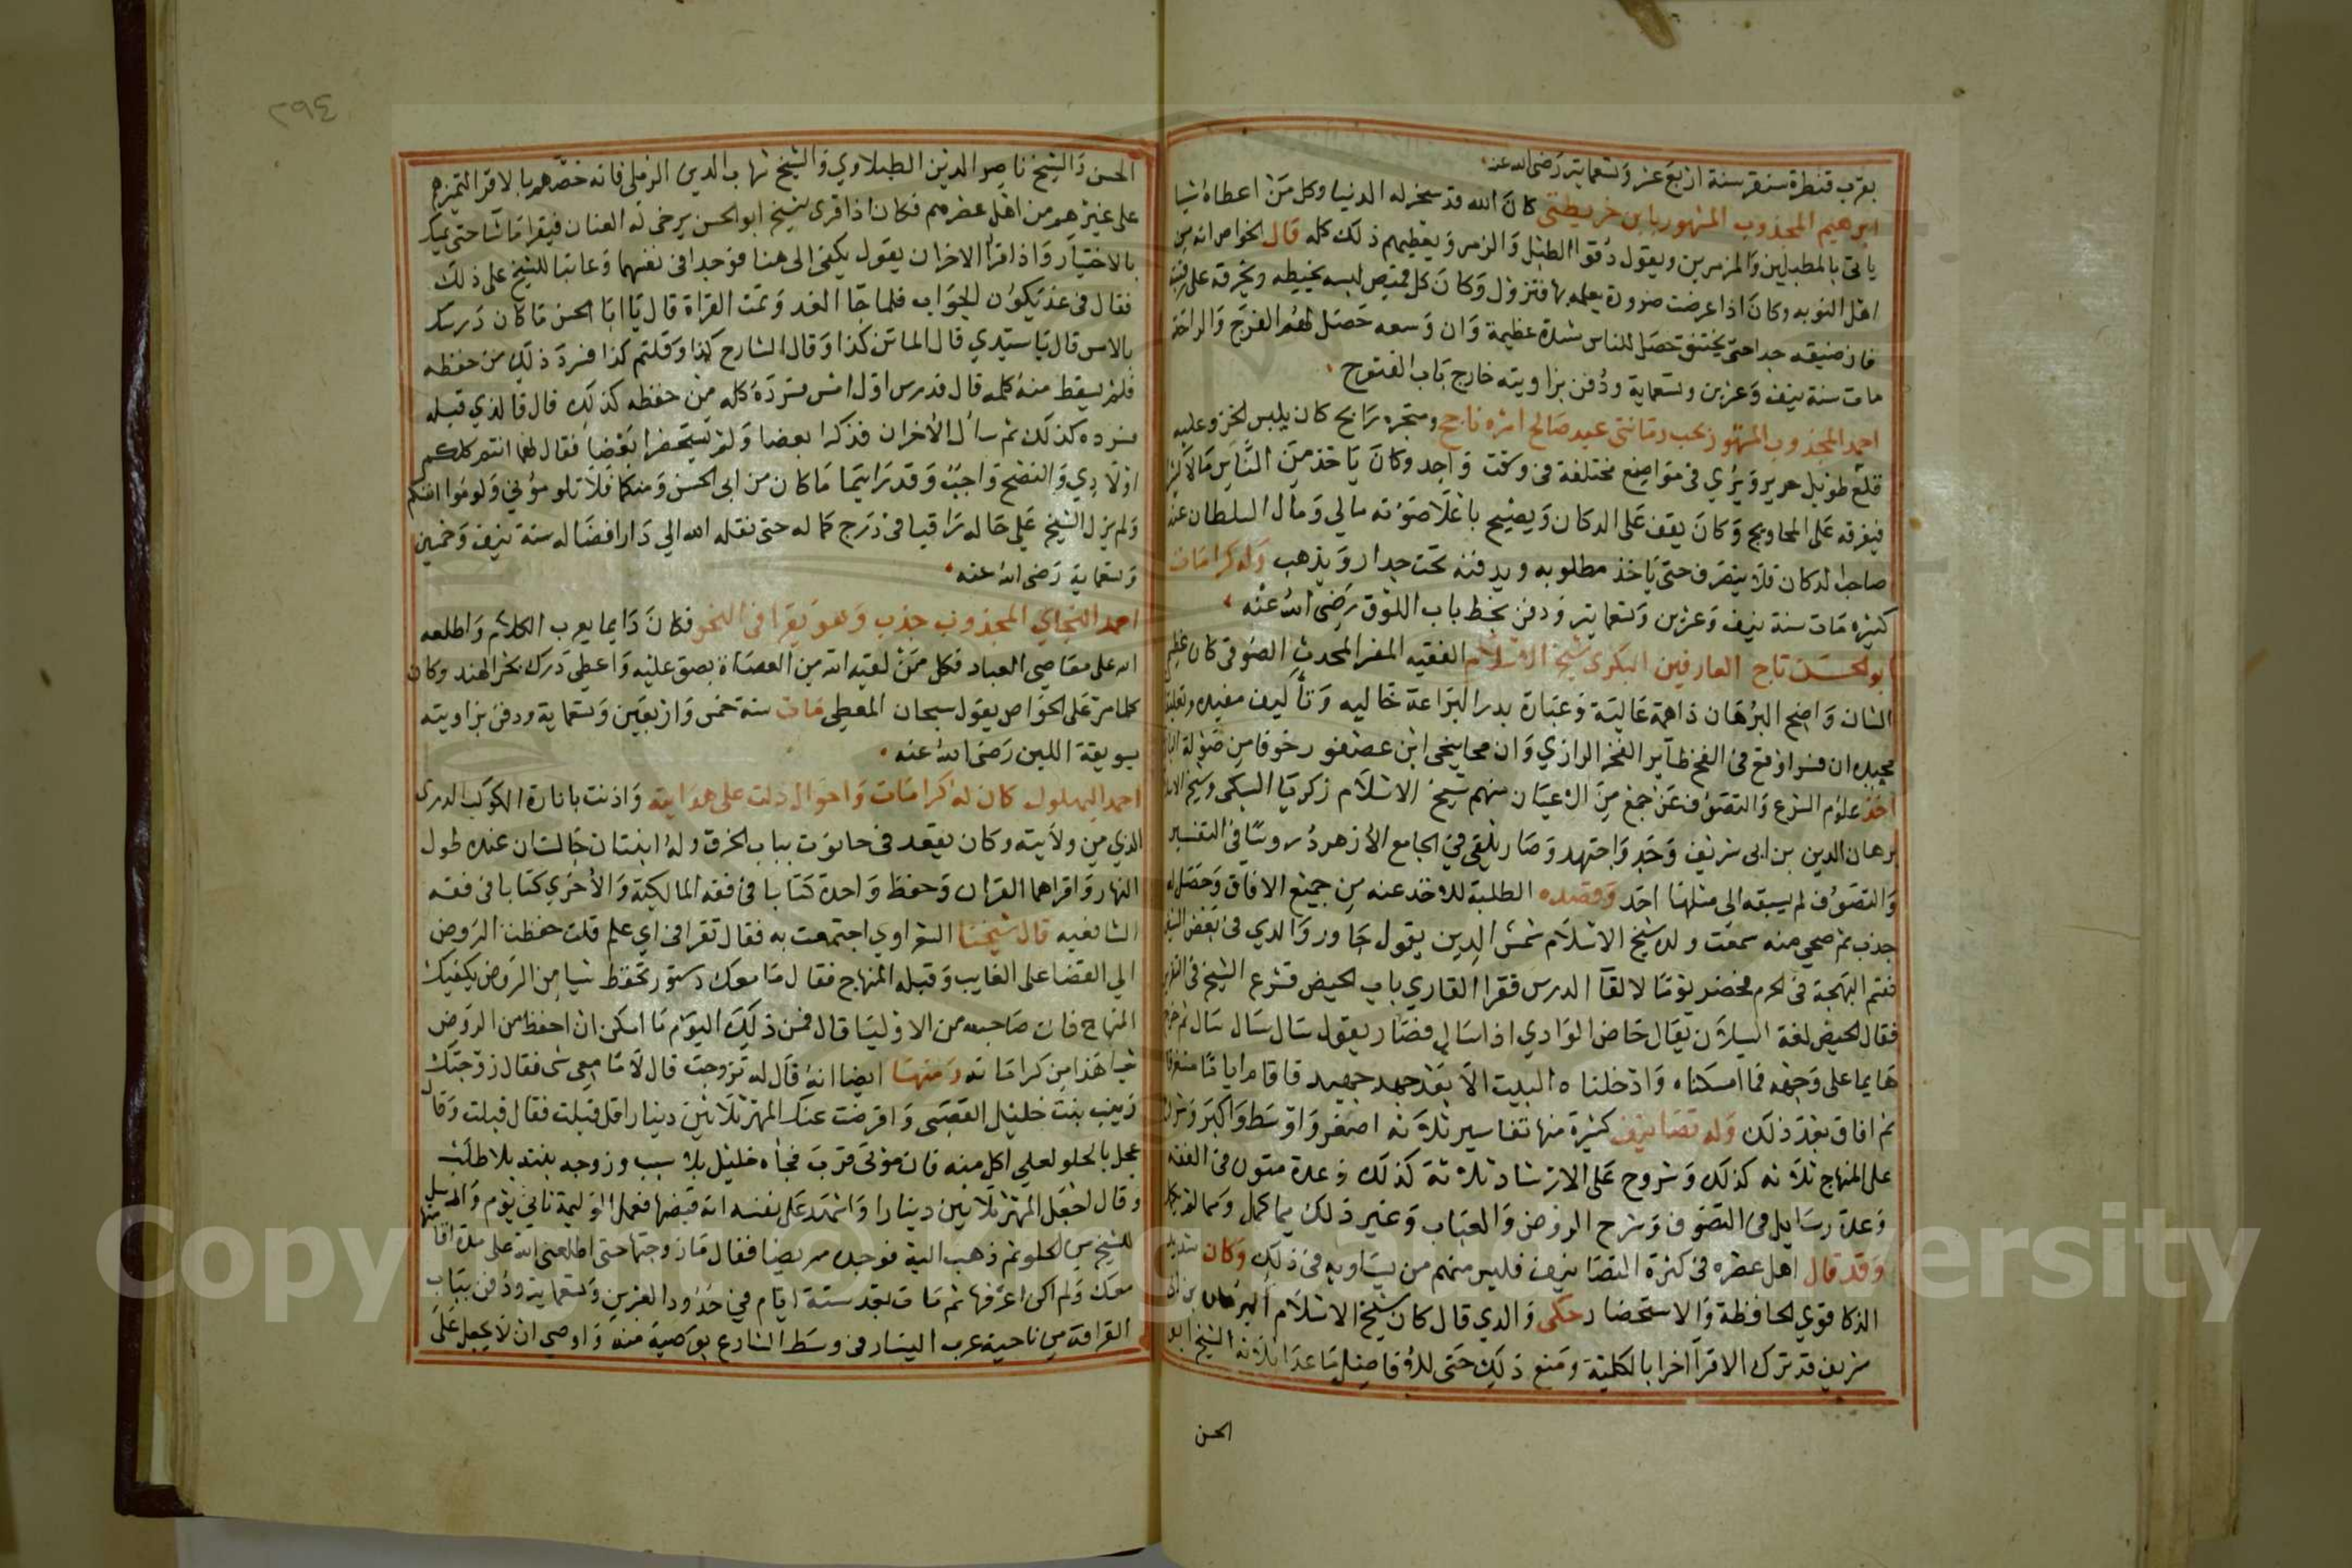 بقرب قنطرة سنقر سنة اربع عشر وتسعماية رضي الله عنه
ابرهيم المجذوب المشهور بابن خريطتي كان الله قد سخر له الدنيا وكل من اعطاه شيا
ياتي بالمطبلين والمزمرين ويقول دقوا الطبل والزمر ويعطيهم ذلك كله قال الخواص انه من
اهل النوبه وكان اذا عرضت ضرورة يعلمه بها فتزول وكان كل قميص لبسه يخيطه ويخرقه على رقبته
فان ضيقه جدا حتى يختنق حصل للناس شدة عظيمة وان وسعه حصل لهم الفرج والراحة
مات سنة نيف وعشرين وتسعماية ودفن بزاويته خارج باب الفتوح
احمد المجذوب المشهور بحب رمانتي عبد صالح امره ناجح ومتجره رابح كان يلبس الخز وعليه
قلع طويل حرير ويرى في مواضع مختلفة في وقت واحد وكان ياخذ من الناس مالا كثيرا
فيفرقه على المحاويج وكان يقف على الدكان ويصيح باعلا صوته مالي ومال السلطان عند
صاحب الدكان فلا ينصرف حتى ياخذ مطلوبه ويدفنه تحت جدار ويذهب وله كرامات
كثيره مات سنة نيف وعشرين وتسعماية ودفن بخط باب اللوق رضي الله عنه
ابو الحسن تاج العارفين البكري شيخ الاسلام الفقيه المفسر المحدث الصوفي كان عظيم
الشان واضح البرهان ذا همة عالية وعبارة بدر البراعة حاليه وتأليف مفيده وتعليقات
مجيده ان فسر اوقع في الفخ طاير الفخر الرازي وان محا ينحى ابن عصفور خوفا من صولة الباز
اخذ علوم الشرع والتصوف عن جمع من الاعيان منهم شيخ الاسلام زكريا السبكي وشيخ الاسلام
برهان الدين بن ابي شريف وجد واجتهد وصار يلقي في الجامع الازهر دروسا في التفسير
والتصوف لم يسبقه الى مثلها احد وقصده الطلبة للاخذ عنه من جميع الافاق وحصل له
جذب ثم صحي منه سمعت ولده شيخ الاسلام شمس الدين يقول جاور والدي في بعض السنين
فقسم البهجة في الحرم فحضر يوما لالقآ الدرس فقرا القاري باب الحيض فشرع الشيخ في التقرير
فقال الحيض لغة السيلان يقال حاض الوادي اذا سال فصار يقول سال سال سال ثم خرج
هايما على وجهه فما امسكناه وادخلناه البيت الا بعد جهد جهيد فاقام اياما مستغرقا
ثم افاق بعد ذلك وله تصانيف كثيرة منها تفاسير ثلاثه اصغر واوسط واكبر وشرح
على المنهاج ثلاثه كذلك وشروح على الارشاد ثلاثة كذلك وعدة متون في الفقه
وعدة رسايل في التصوف وشرح الروض والعباب وغير ذلك مما كمل ومما لم يكمل
وقد قال اهل عصره في كثرة التصانيف فليس منهم من يساويه في ذلك وكان شديد
الذكا قوي الحافظة والاستحضار حكى والدي قال كان شيخ الاسلام البرهان بن ابي
شريف قد ترك الاقرآ اخرا بالكلية ومنع ذلك حتى للافاضل ما عدا ثلاثة الشيخ ابو
الحسن
٢٩٤
الحسن والشيخ ناصر الدين الطبلاوي والشيخ شهاب الدين الرملي فانه خصهم بالاقرا لتميزهم
على غيرهم من اهل عصرهم فكان اذا قرى الشيخ ابو الحسن يرخي له العنان فيقرا ما شا حتى يمسك
بالاختيار واذا قرا الاخران يقول يكفي الى هنا فوجدا في نفسهما وعاتبا الشيخ على ذلك
فقال في غد يكون الجواب فلما جا الغد وتمت القراة قال يا ابا الحسن ما كان درسك
بالامس قال يا سيدي قال الماتن كذا وقال الشارح كذا وقلتم كذا فسرد ذلك من حفظه
فلم يسقط منه كلمه قال فدرس اول امس سرده كله من حفظه كذلك قال فالذي قبله
سرده كذلك ثم سال الاخران فذكرا بعضا ولم يستحضرا بعضا فقال لهما انتم كلكم
اولادي والنصح واجب وقد رايتما ما كان من ابي الحسن ومنكما فلا تلوموني ولوموا انفسكم
ولم يزل الشيخ على حاله راقيا في درج كماله حتى نقله الله الي دار افضاله سنة نيف وخمسين
وتسعماية رضي الله عنه
احمد النجاي المجذوب جذب وهو يقرا في النحو فكان دايما يعرب الكلام واطلعه
الله على معاصي العباد فكل من لقيه الله من العصاة بصق عليه واعطي درك بحر الهند وكان
كلما مر على الخواص يقول سبحان المعطي مات سنة خمس واربعين وتسعماية ودفن بزاويته
بسويقة اللبن رضي الله عنه
احمد البهلول كان له كرامات واحوال دلت على هدايته واذنت بانارة الكوكب الدري
الذي من ولايته وكان يقعد في حانوت بباب الخرق وله ابنتان جالستان عنده طول
النهار واقراهما القران وحفظ واحدة كتابا في فقه المالكية والاخرى كتابا في فقه
الشافعيه قال شيخنا الشعراوي اجتمعت به فقال تقرا في اي علم قلت حفظت الروض
الي القضا على الغايب وقبله المنهاج فقال ما معك دستور تحفظ شيا من الروض يكفيك
المنهاج فان صاحبه من الاوليا قال فمن ذلك اليوم ما امكن ان احفظ من الروض
شيا هذا من كراماته ومنها ايضا انه قال له تزوجت قال لا ما معي شي فقال زوجتك
زينب بنت خليل القصبي واقرضت عنك المهر ثلاثين دينارا قل قبلت فقال قبلت وقال
عجل بالحلو لعلي اكل منه فان موتي قرب فجاه خليل بلا سبب وزوجه بنته بلا طلب
وقال اجعل المهر ثلاثين دينارا واشهد على نفسه انه قبضها فعمل الوليمة ثاني يوم وارسل
للشيخ من الحلو ثم ذهب اليه فوجده مريضا فقال ما زوجتها حتى اطلعني الله على مدة اقامتها
معك ولم اكن اعرفها ثم مات بعد ستة ايام في حدود العشرين وتسعماية ودفن بباب
القرافة من ناحية عرب اليسار في وسط الشارع بوصية منه واوصى ان لا يجعل على